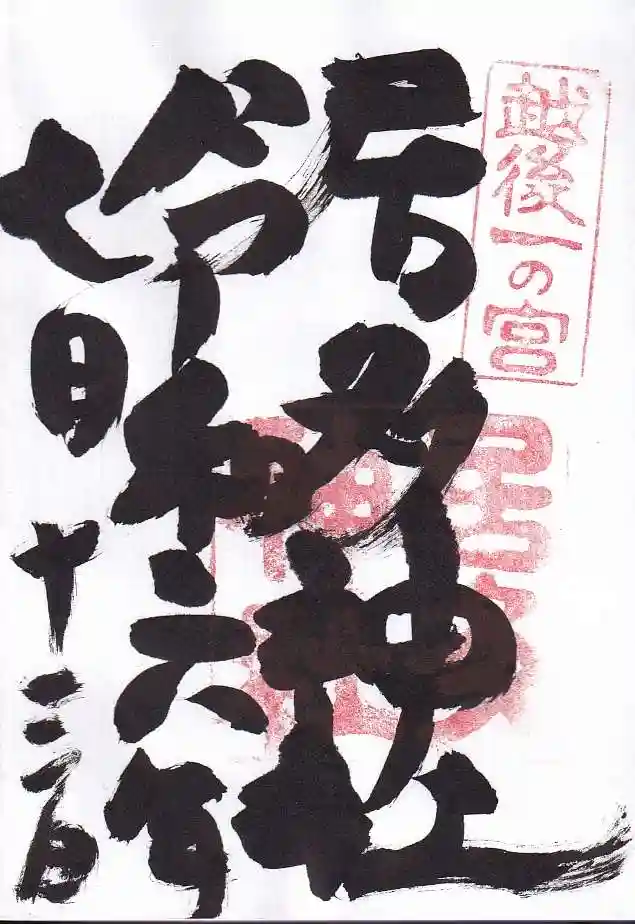 越後一の宮
居多神社
令和六年
七月十三日